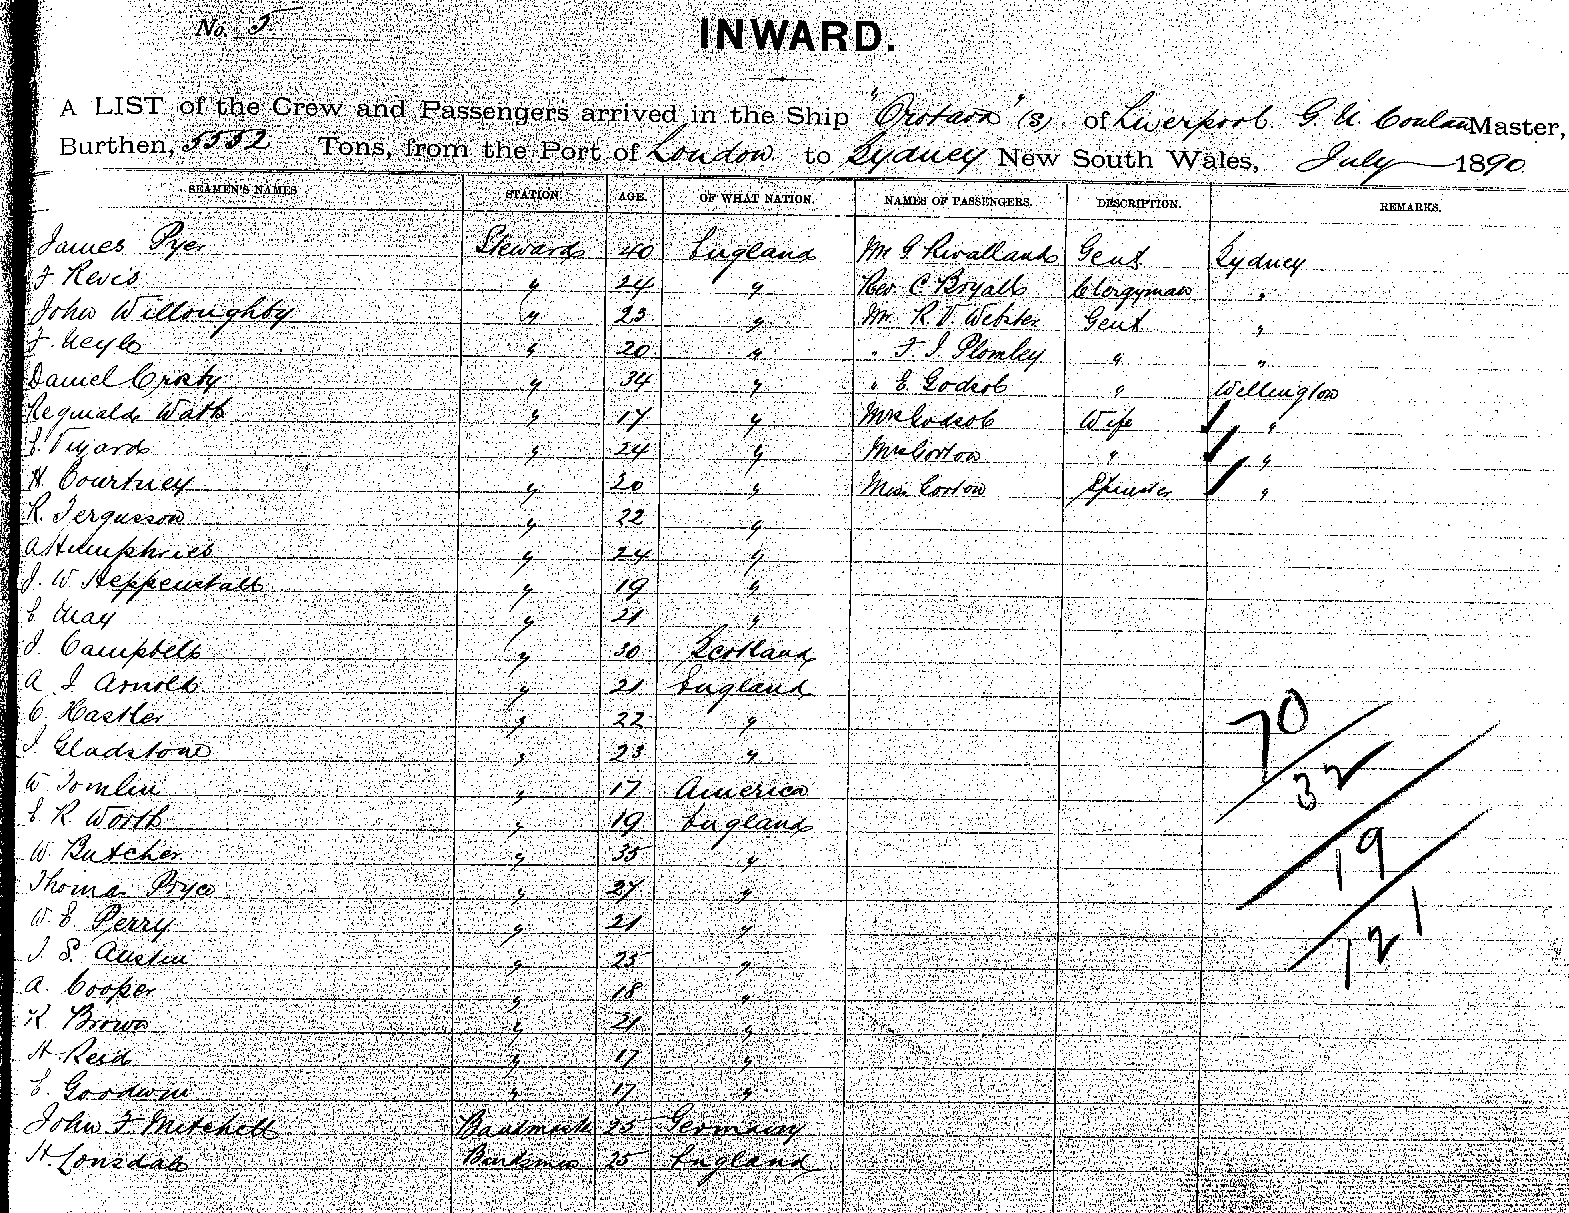 No. 5
INWARD.
A LIST of the Crew and Passengers arrived in the Ship "Orotava" (s) of Liverpool G. N. Conlan Master,
Burthen, 5552 Tons, from the Port of London to Sydney New South Wales, July 1890
SEAMEN'S NAMES STATION. AGE. OF WHAT NATION. NAMES OF PASSENGERS. DESCRIPTION. REMARKS.
James Pyer Stewards 40 England Mr G Rivalland Gent Sydney
F Revis " 24 " Rev. C Bryall Clergyman "
John Willoughby " 23 " Mr R V Webster Gent "
F " 20 " " F J Plomley " "
Daniel Crosty " 34 " " E Godsob " Wellington
Reginald Watt " 17 " Mrs Godsob Wife "
E Vizard " 24 " Mrs Corton " "
H Courtney " 20 " Miss Corton Spinster "
R. Fergusson " 22 "
A Humphries " 24 "
J. W Heppenstall " 19 "
E May " 21 "
J. Campbell " 30 Scotland
A J Arnold " 21 England
C Hastler " 22 "
J. Gladstone " 23 "
W Tomlin " 17 America
E R Worth " 19 England
W Butcher " 35 "
Thomas Pryce " 27 "
W E Perry " 21 "
J S. Austin " 25 "
A. Cooper " 18 "
R Brown " 21 "
H Reid " 17 "
E Goodwin " 17 "
John F Mitchell Bandmaster 25 Germany
H. Lonsdale Bandsman 25 England
70
32
19
121